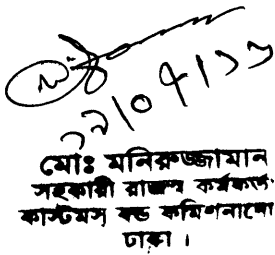 মোঃ মনিরুজ্জামান
সহকারী রাজস্ব কর্মকর্তা
কাস্টমস বন্ড কমিশনারেট
ঢাকা ।